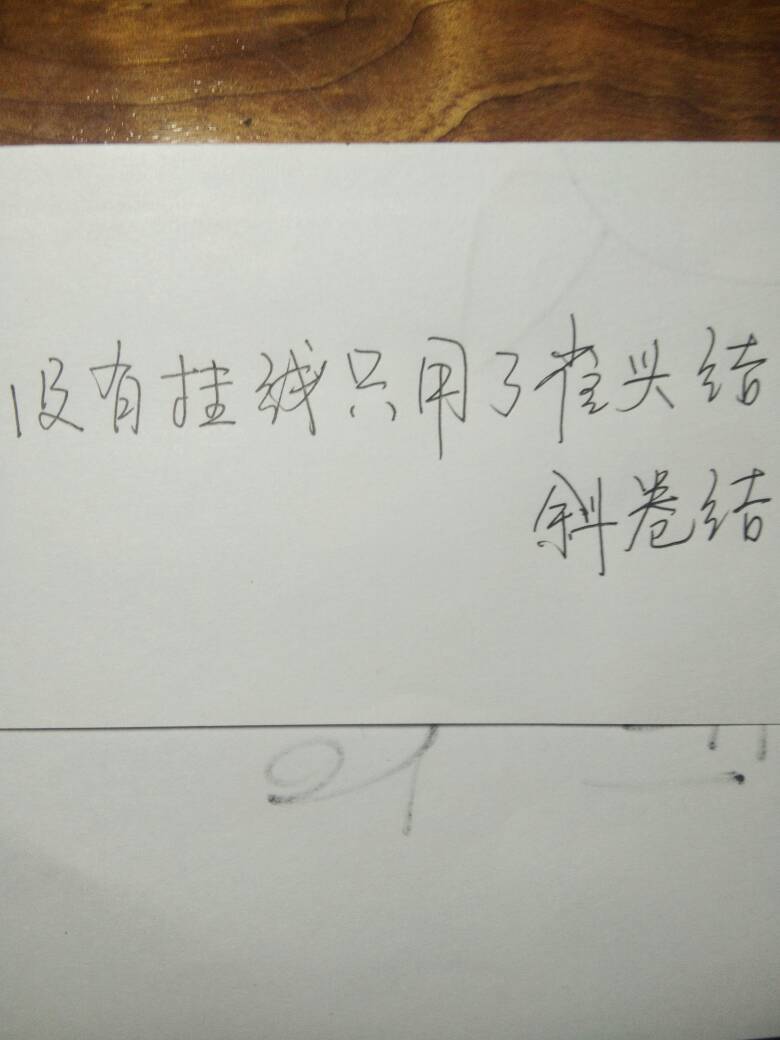 没有挂线只用了雀头结
斜卷结